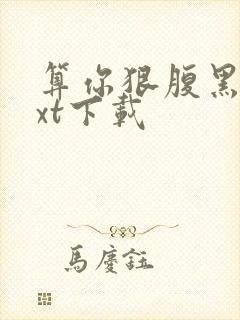 算你狠腹黑
xt下載
馬慶鈺